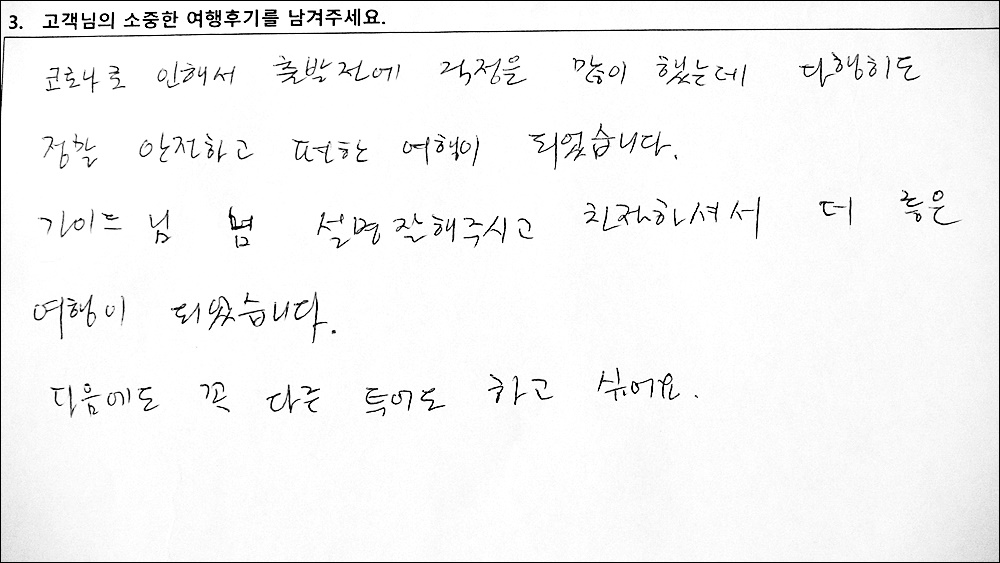 3. 고객님의 소중한 여행후기를 남겨주세요.
코로나로 인해서 출발전에 걱정을 많이 했는데 다행히도
정말 안전하고 편한 여행이 되었습니다.
가이드님 설명잘해주시고 친절하셔서 더 좋은
여행이 되었습니다.
다음에도 꼭 다른 투어도 하고 싶어요.